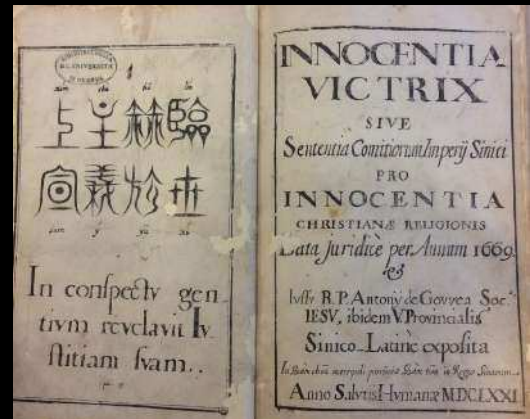 上主赫臨
宣義於世
In conspectv gen
tivm revelavit Iv
stitiam svam..
INNOCENTIA
VICTRIX
SIVE
Sententia Comitiorum Imperij Sinici
PRO
INNOCENTIA
CHRISTIANÆ RELIGIONIS
Lata Juridicè per Annum 1669
&
Iussv R. P. Antonij de Govvea Soc.
IESV, ibidem V. Provincialis
Sinico-Latinè exposita
In metropoli provinciæ in Regno Sinarum
Anno Salvtis Hvmanæ MDCLXXI